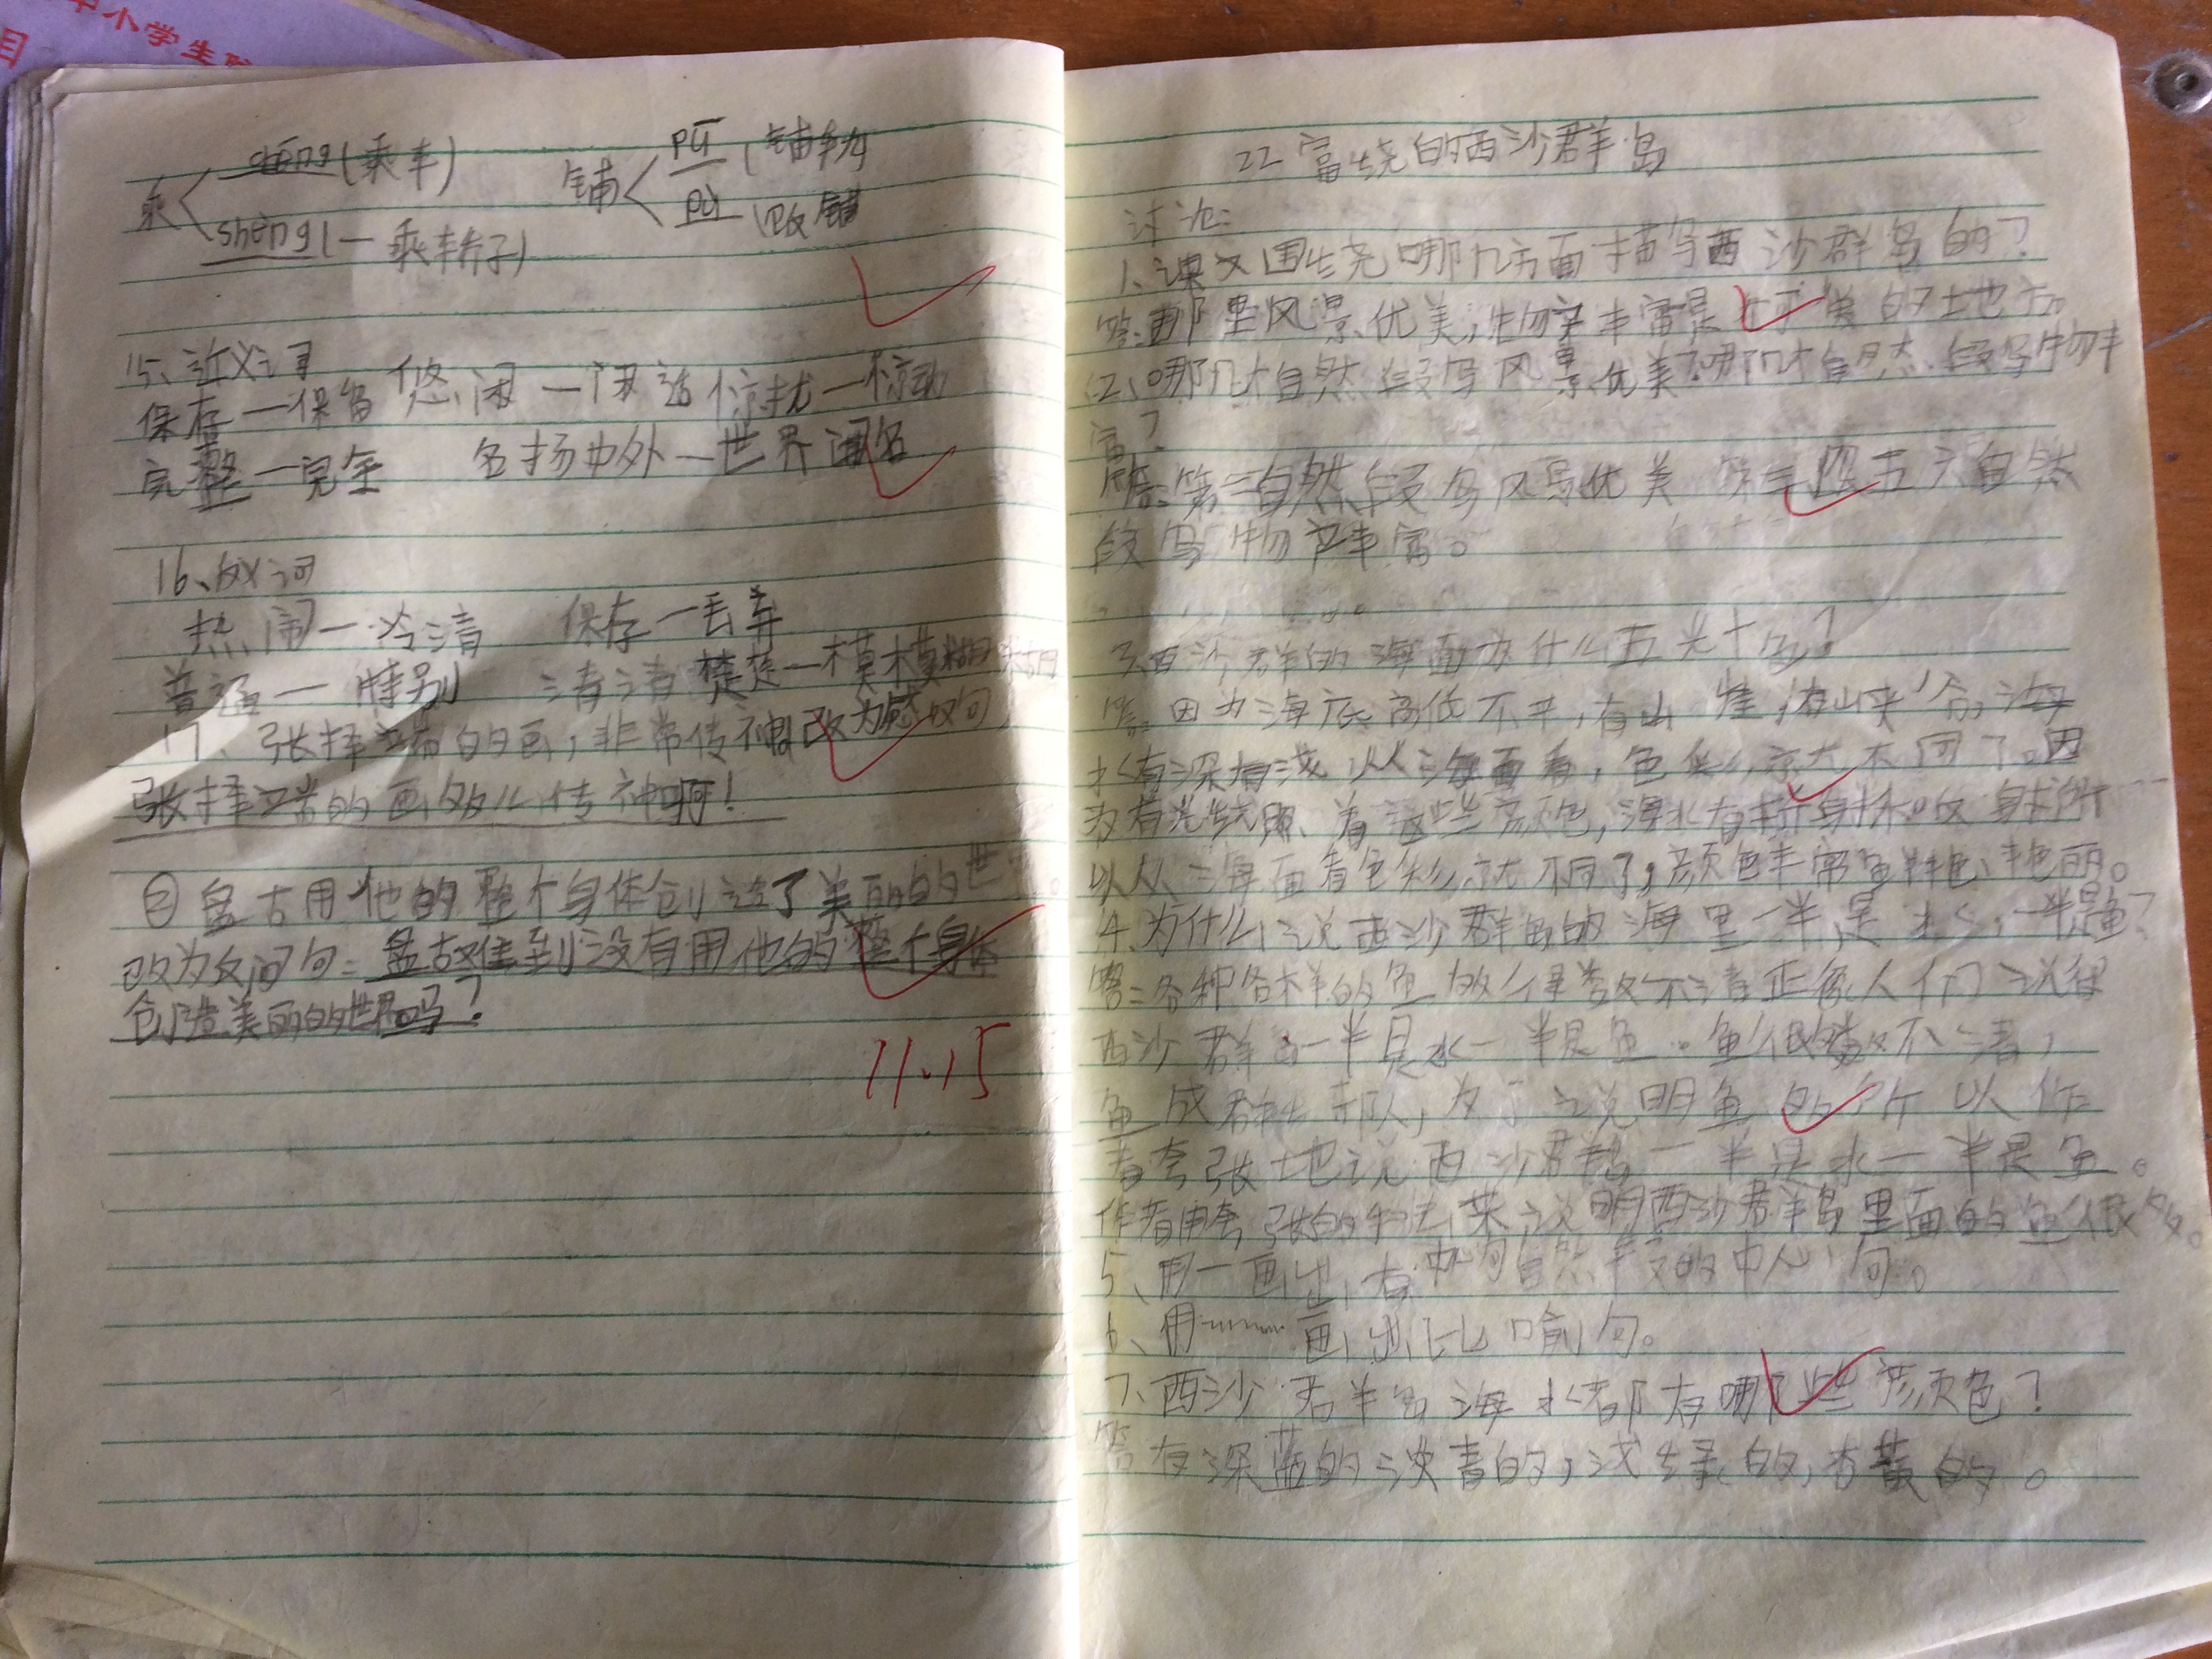 中小学生
目
乘 chéng(乘车) 铺 pū(铺轨
shèng(一乘轿子) pù
15、近义词
保存—保留 悠闲—闲适 惊扰—惊动
完整—完全 名扬中外—世界闻名
16、反义词
热闹—冷清 保存—丢弃
普通—特别 清清楚楚—模模糊糊
17、张择端的画,非常传神 改为感叹句
张择端的画多么传神啊!
② 盘古用他的整个身体创造了美丽的世
改为反问句:盘古难到没有用他的整个身体
创造美丽的世界吗?
11.15
22 富饶的西沙群岛
讨论:
1、课文围绕哪几方面描写西沙群岛的?
答:那里风景优美,物产丰富是 的地方
2、哪几个自然段写风景优美?哪几个自然段写物产丰
富?
答:第二自然段写风景优美 第三四五六自然
段写物产丰富。
3、西沙群的海面为什么五光十色?
答:因为海底高低不平,有山崖,有山峡谷,海
水有深有浅 从海面看,色彩就不同了。因
为有光线照着这些颜色,海水有折射 吸 射所
以从海面看色彩就不同了,颜色丰富 艳丽。
4、为什么说西沙群岛的海里一半是水,一半是鱼?
答:各种各样的鱼多得数不清正象人们说得
西沙群岛一半是水一半是鱼。鱼很 数不清,
鱼成群结队,为了说明鱼多所以作
者夸张地说西沙群岛一半是水一半是鱼。
作者用夸张的 来说明西沙群岛里面的鱼很多。
5、用—画出有 自然段的中心句。
6、用﹏﹏画出比喻句。
7、西沙群岛海水都有哪些颜色?
答有深蓝的淡青的,浅绿的,杏黄的。